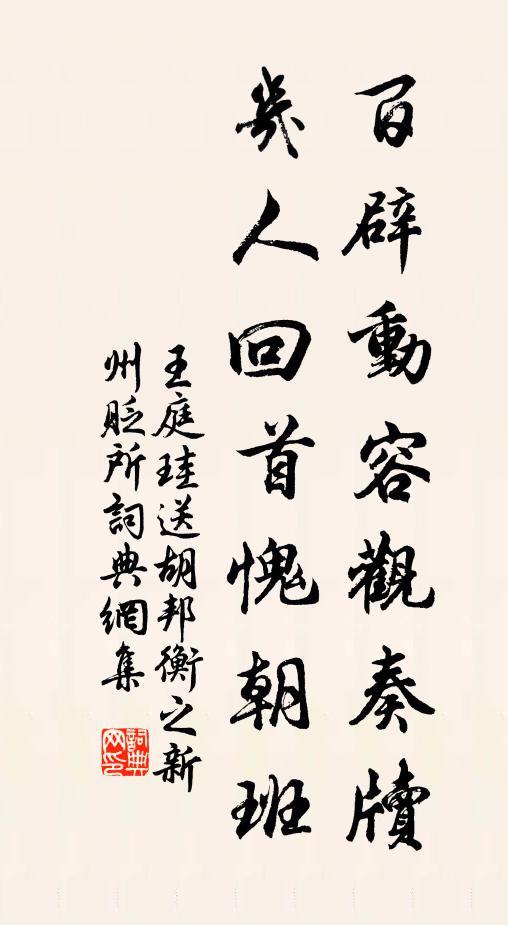 百辟動容觀奏牘
幾人回首愧朝班
王庭珪送胡邦衡之新
州貶所詞典網集
詞典
网印